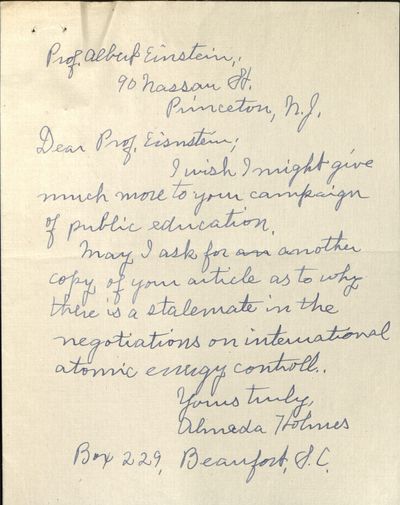 Prof. Albert Einstein,
90 Nassau St.
Princeton, N.J.
Dear Prof. Eisnstein;
I wish I might give
much more to your campaign
of public education.
May I ask for an another
copy of your article as to why
there is a stalemate in the
negotiations on international
atomic energy controll.
Yours truly,
Almeda Holmes
Box 229, Beaufort, S.C.